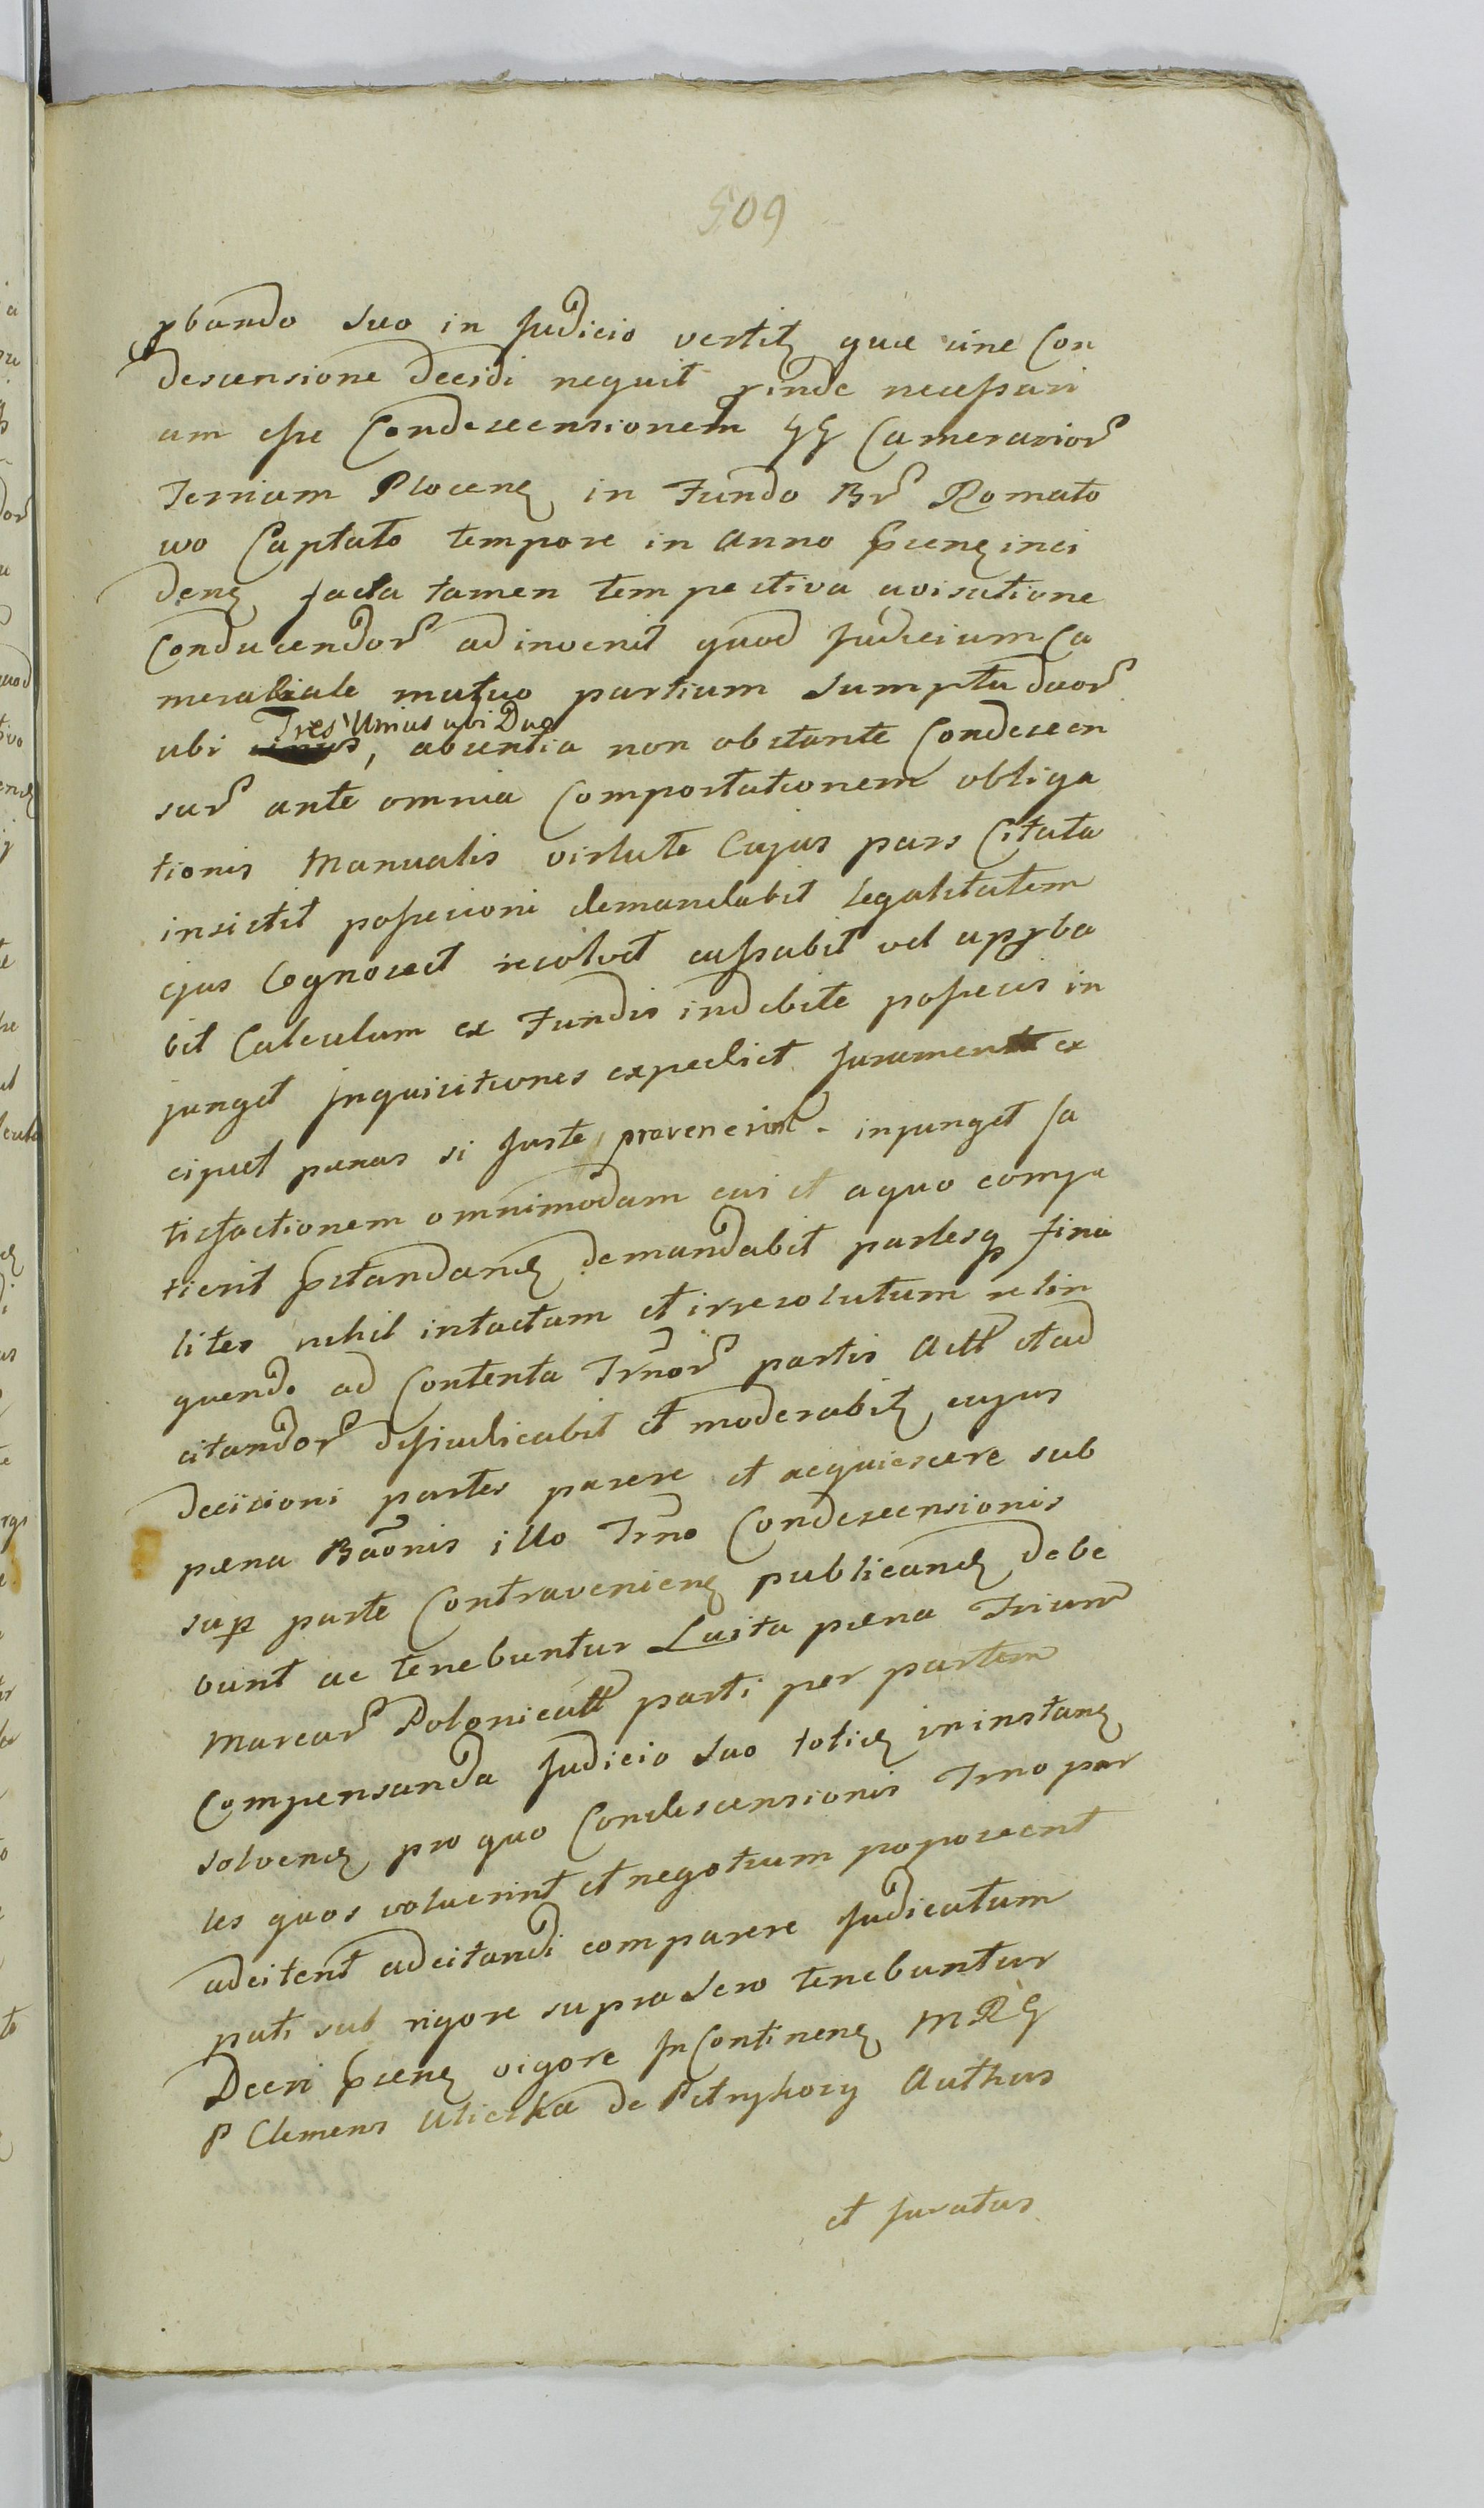 509
pbando suo in Judicio vertit quæ sine Con
descensione decidi nequit pinde necessari
um esse Condescensionem GG Camerarior
Terrium Plocen in Fundo Br Romato
wo Captato tempore in Anno psen inci
den facta tamen tempestiva avisatione
Conducendor adinvenit quod Judicium Ca
merariale mutuo partium sumptu duor
Tres Unius ubi Duo
ubi , absentia non obstante Condescen
sur ante omnia Comportationem obliga
tionis Manualis virtute Cujus pars Citata
insistit possessioni demandabit legalitatem
ejus Cognoscet resolvet cassabit vel appba
bit Calculum ex Fundis indebite possessis in
junget Inquisitiones expediet Jurament ex
cipiet pænas si Juste provenerint injunget sa
tisfactionem omnimodam cui et a quo compe
tierit pstandam demandabit partesq fina
liter nihil intactum et irresolutum relin
quendo ad Contenta Trnor partis Actt et ad
citandor disjudicabit et moderabit cujus
decisioni partes parere et acquiescere sub
pæna Baonis illo Trno Condescensionis
sup parte Contravenien publicand debe
bunt ac tenebuntur Luita pæna Trium
Marcar Polonicatt parti per partem
Compensanda Judicio suo toties in instan
solvend pro quo Condescensionis Trno par
tes quos voluerint et negotium poposcent
adcitent adcitandi comparere Judicatum
pati sub rigore suprasero tenebuntur
Decri psen vigore In Continen MRG
P Clemens Uliczka de Petrykozy Authus
et Juratus